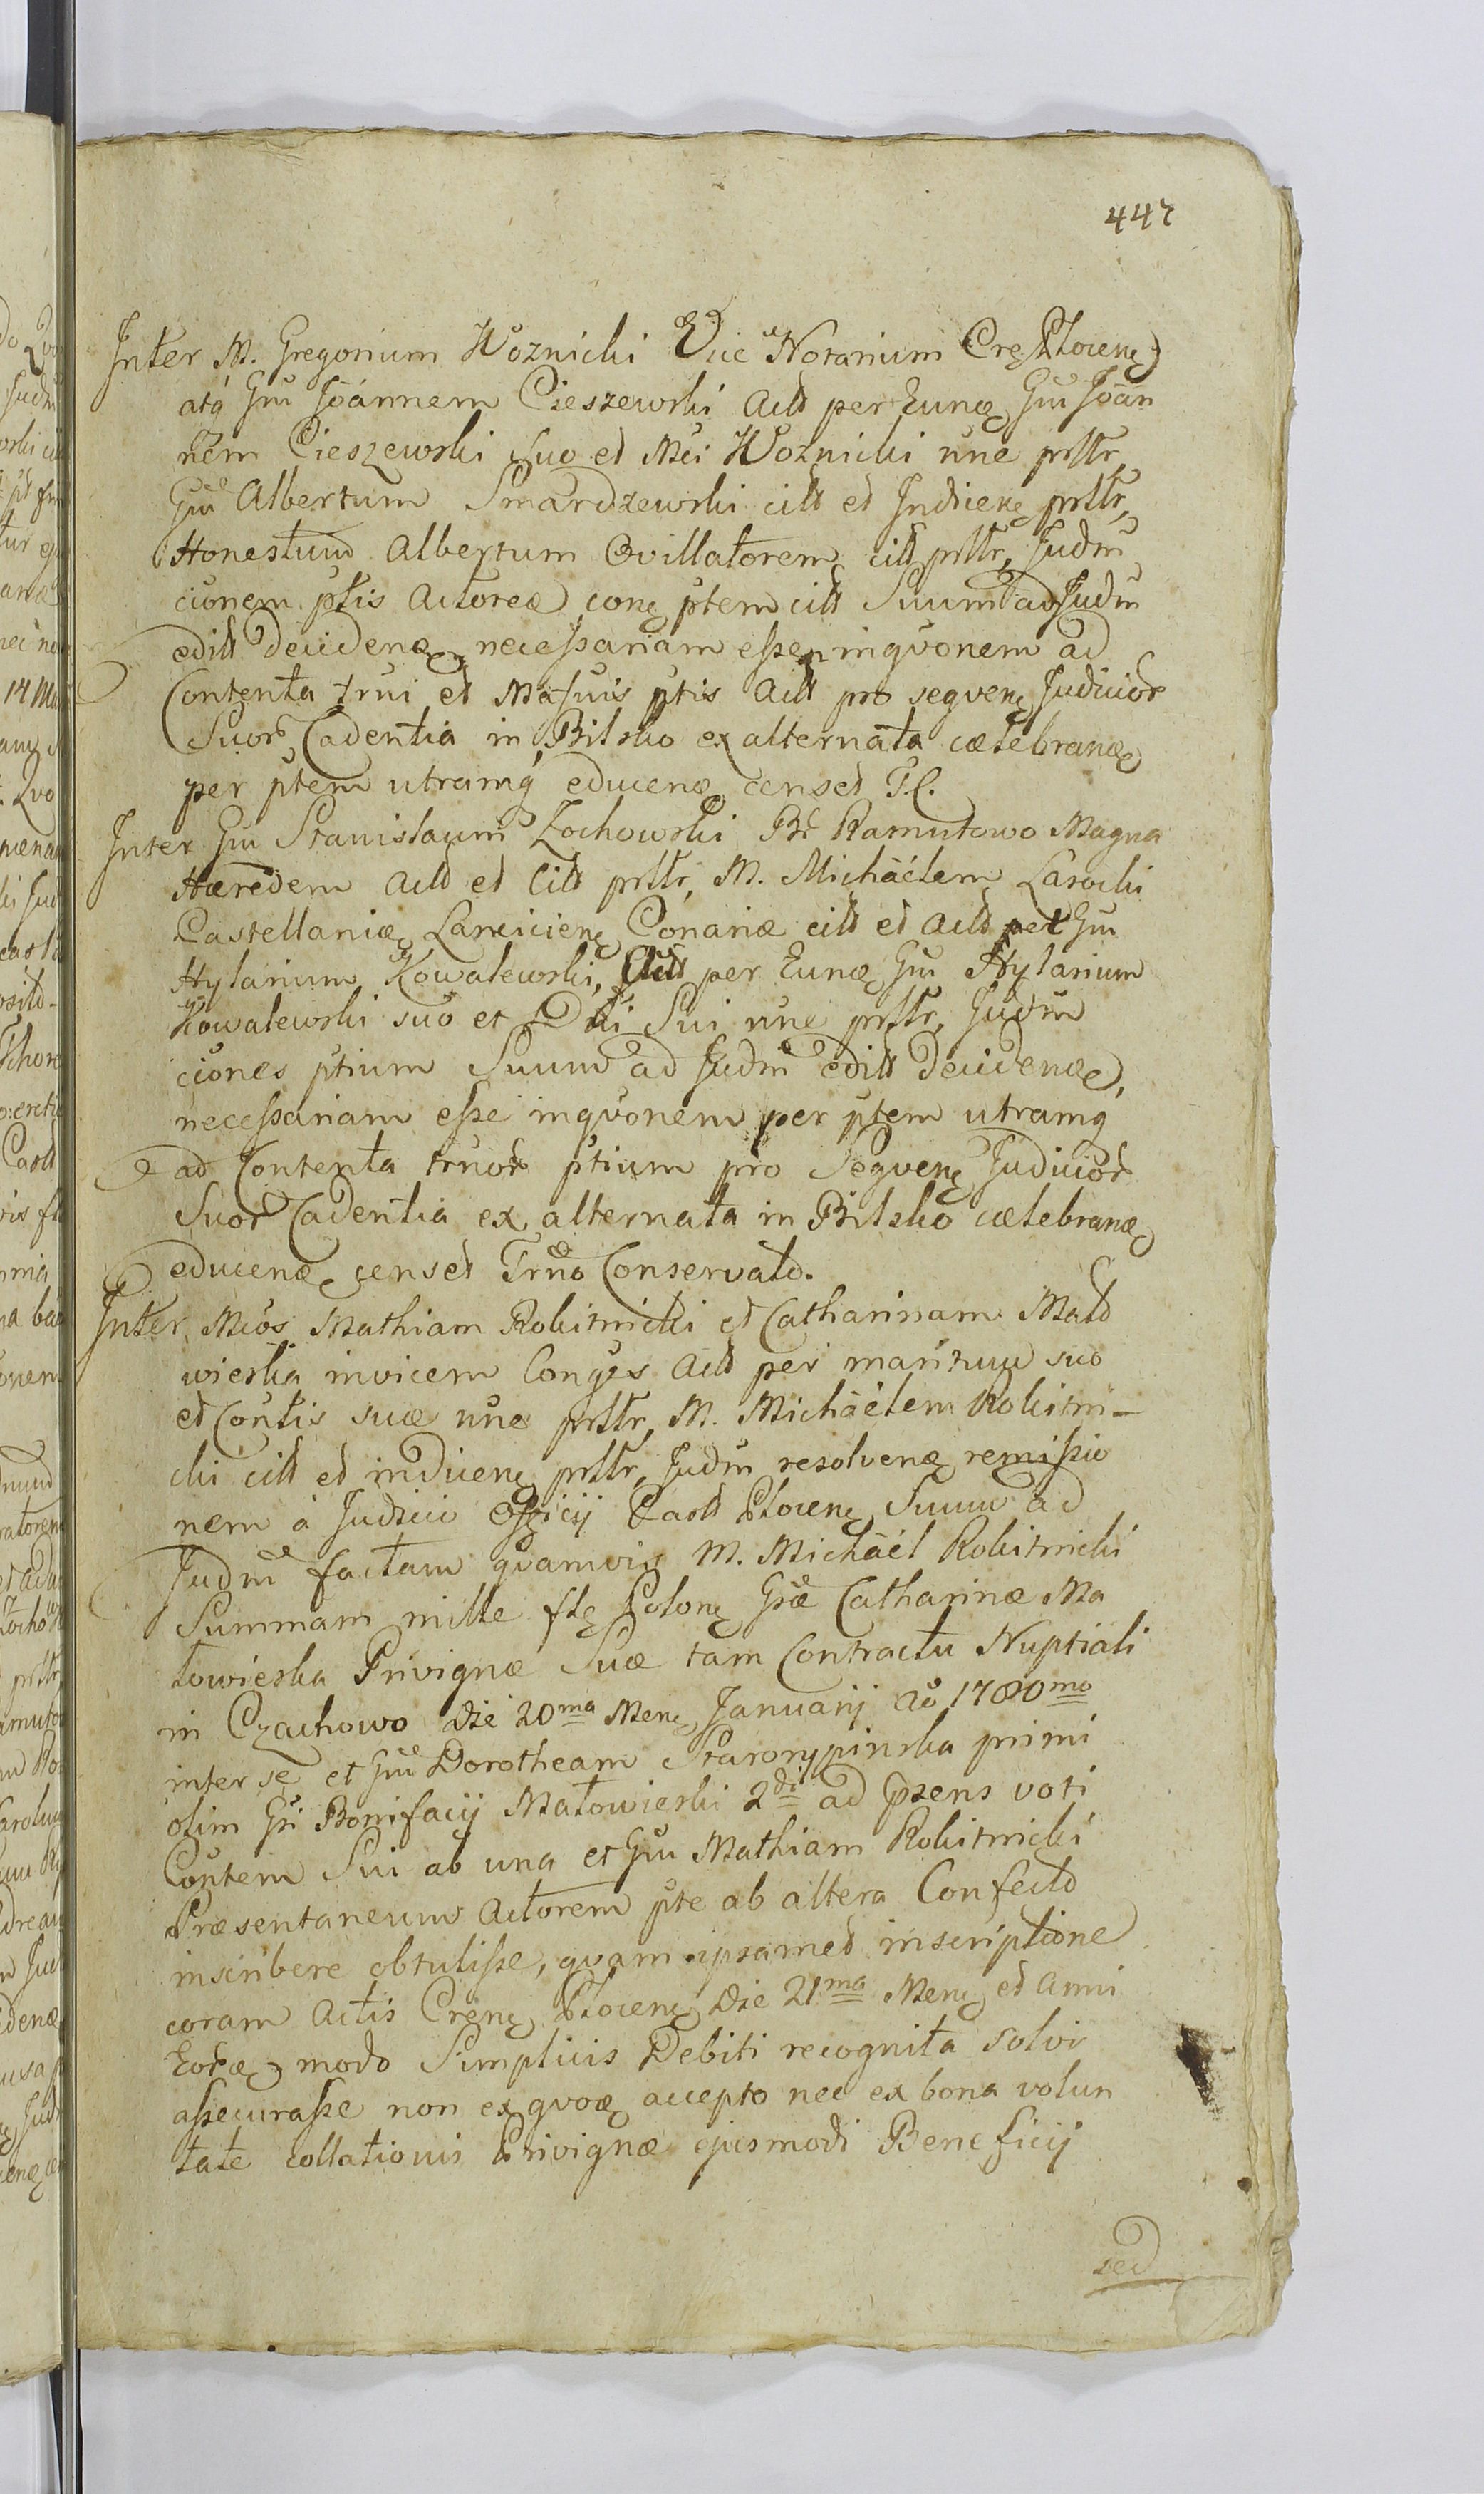 447
Inter M. Gregorium Woznicki Vice Notarium Crę Płocenę
atq́ Gnū Joánnem Cieszewski Actt per Eunę Gnū Joan
nem Cieszewski suo et Mci Woznicki nńe prttr,
Gnū Albertum Smardzewski citt et Indicenę prttr,
Honestum Albertum Ovillatorem citt prttr, Judm̄
cionem ptis Actoreæ conę ptem citt Suum ad Judm̄
editt Decidenæ, necessariam esse inqvonem ad
Contenta trńi et Masuis ptis Actt pro seqvenę Judicior
Suor Cadentia in Bilsko ex alternata cælebranæ
per ptem utramq́ educenæ censet Tl.
Inter Gnū Stanislaum Zochowski Br̄ Ramutowo Magna
Hæredem Actt et Citt prttr, M. Michäélem Lasocki
Castellaniæ Lancicienę Conariæ citt et Actt per Gnū
Hylarium Kowalewski, Actt per Eunæ Gnū Hylarium
Kowalewski suo et Dn̄i Sui nńe prttr, Judm̄
ciones ptium Suum ad Judm̄ editt Decidenæ,
necessariam esse inqvonem per ptem utramq́
ad Contenta trńor ptium pro Seqvenę Judicior
Suor Cadentia ex alternata in Bilsko cælebranæ
educenæ censet Trńo Conservato.
Inter Mcos Mathiam Rokitnicki et Catharinam Mało
wieska invicem Conges Actt per maritum suo
et Contis suæ nńe prttr, M. Michäélem Rokitni-
cki citt et indicenę prttr, Judm̄ resolvenæ remissio
nem á Judicio Officij Castt Płocenę Suum ad
Judm̄ factam qvamvis M. Michäél Rokitnicki
Summam mille flę Polonę Gsæ Catharinæ Ma
łowieska Privignæ Suæ tam Contractu Nuptiali
in Czachowo die 20ma Menę Januarij Aō 1780mo
inter se et Gnū Dorotheam Starorypinska primi
olim Gsi Bonifacij Małowieski 2di ad p̄sens voti
Contem Sui ab una et Gnū Mathiam Rokitnicki
Præsentaneum Actorem p̄te ab altera Confecto
inscribere obtulisse, qvam ipsamet inscriptione
coram Actis Crenę Płocenę Die 21ma Menę et Anni
Eoræ modo Simplicis Debiti recognita solvi
assecurasse non ex qvoæ accepto nec ex bona volun
tate collationis Privignæ ejusmodi Beneficij
sed